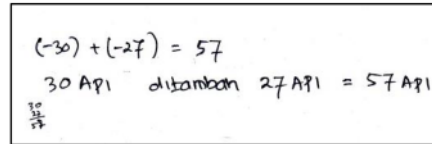 (-30) + (-27) = 57
30 API ditambah 27 API = 57 API
30
27
57